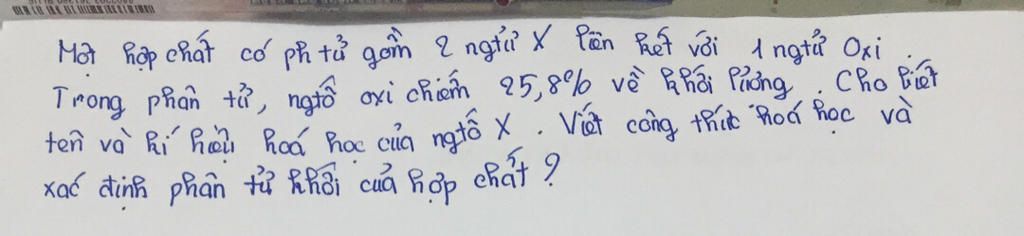 Một hợp chất có ph tử gồm 2 ngtử X liên kết với 1 ngtử Oxi.
Trong phân tử, ngtố oxi chiếm 25,8% về khối lượng. Cho biết
tên và kí hiệu hoá học của ngtố X. Viết công thức hoá học và
xác định phân tử khối của hợp chất?